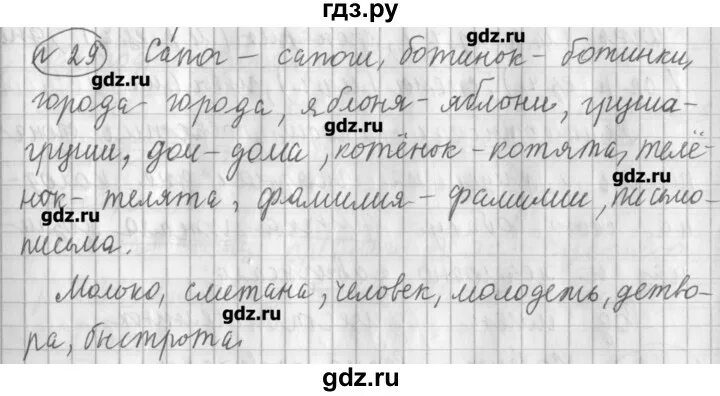 гдз.ру
№ 29 Сапог – сапоги, ботинок – ботинки,
gdz.ru
gdz.ru
города – города, яблоня – яблони, груша –
gdz.ru
груши, дом – дома, котёнок – котята, телё-
gdz.ru
нок – телята, фамилия – фамилии, письмо –
gdz.ru
письма.
Молоко, сметана, человек, молодеть, детво-
gdz.ru
ра, быстрота.
gdz.ru